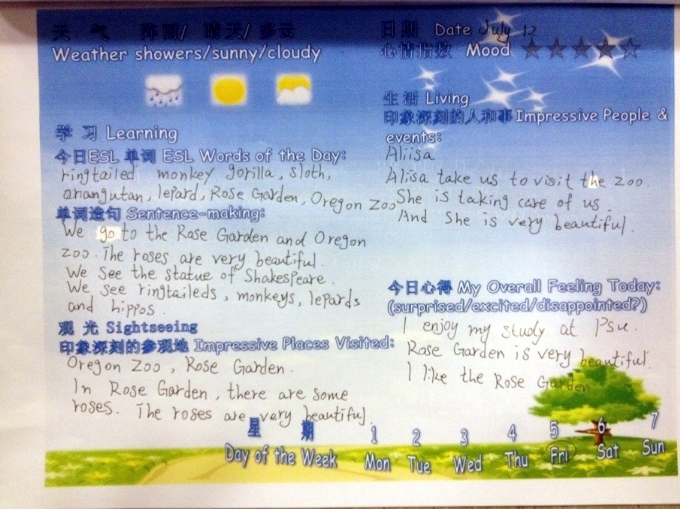 天 气 阵雨/ 晴天/ 多云
Weather showers/sunny/cloudy
日 期 Date July 12
心情指数 Mood
学 习 Learning
今日ESL 单词 ESL Words of the Day:
ringtailed monkey gorilla, sloth,
orangutan, lepard, Rose Garden, Oregon Zoo
单词造句 Sentence-making:
We go to the Rose Garden and Oregon
zoo. The roses are very beautiful.
We see the statue of Shakespeare.
We see ringtaileds, monkeys, lepards
and hippos.
观 光 Sightseeing
印象深刻的参观地 Impressive Places Visited:
Oregon Zoo, Rose Garden.
In Rose Garden, there are some
roses. The roses are very beautiful.
生 活 Living
印象深刻的人和事 Impressive People &
events:
Aliisa
Aliisa take us to visit the zoo.
She is taking care of us.
And She is very beautiful.
今日心得 My Overall Feeling Today:
(surprised/excited/disappointed?)
I enjoy my study at Psu.
Rose Garden is very beautiful.
I like the Rose Garden
星 期 1 2 3 4 5 6 7
Day of the Week Mon Tue Wed Thu Fri Sat Sun